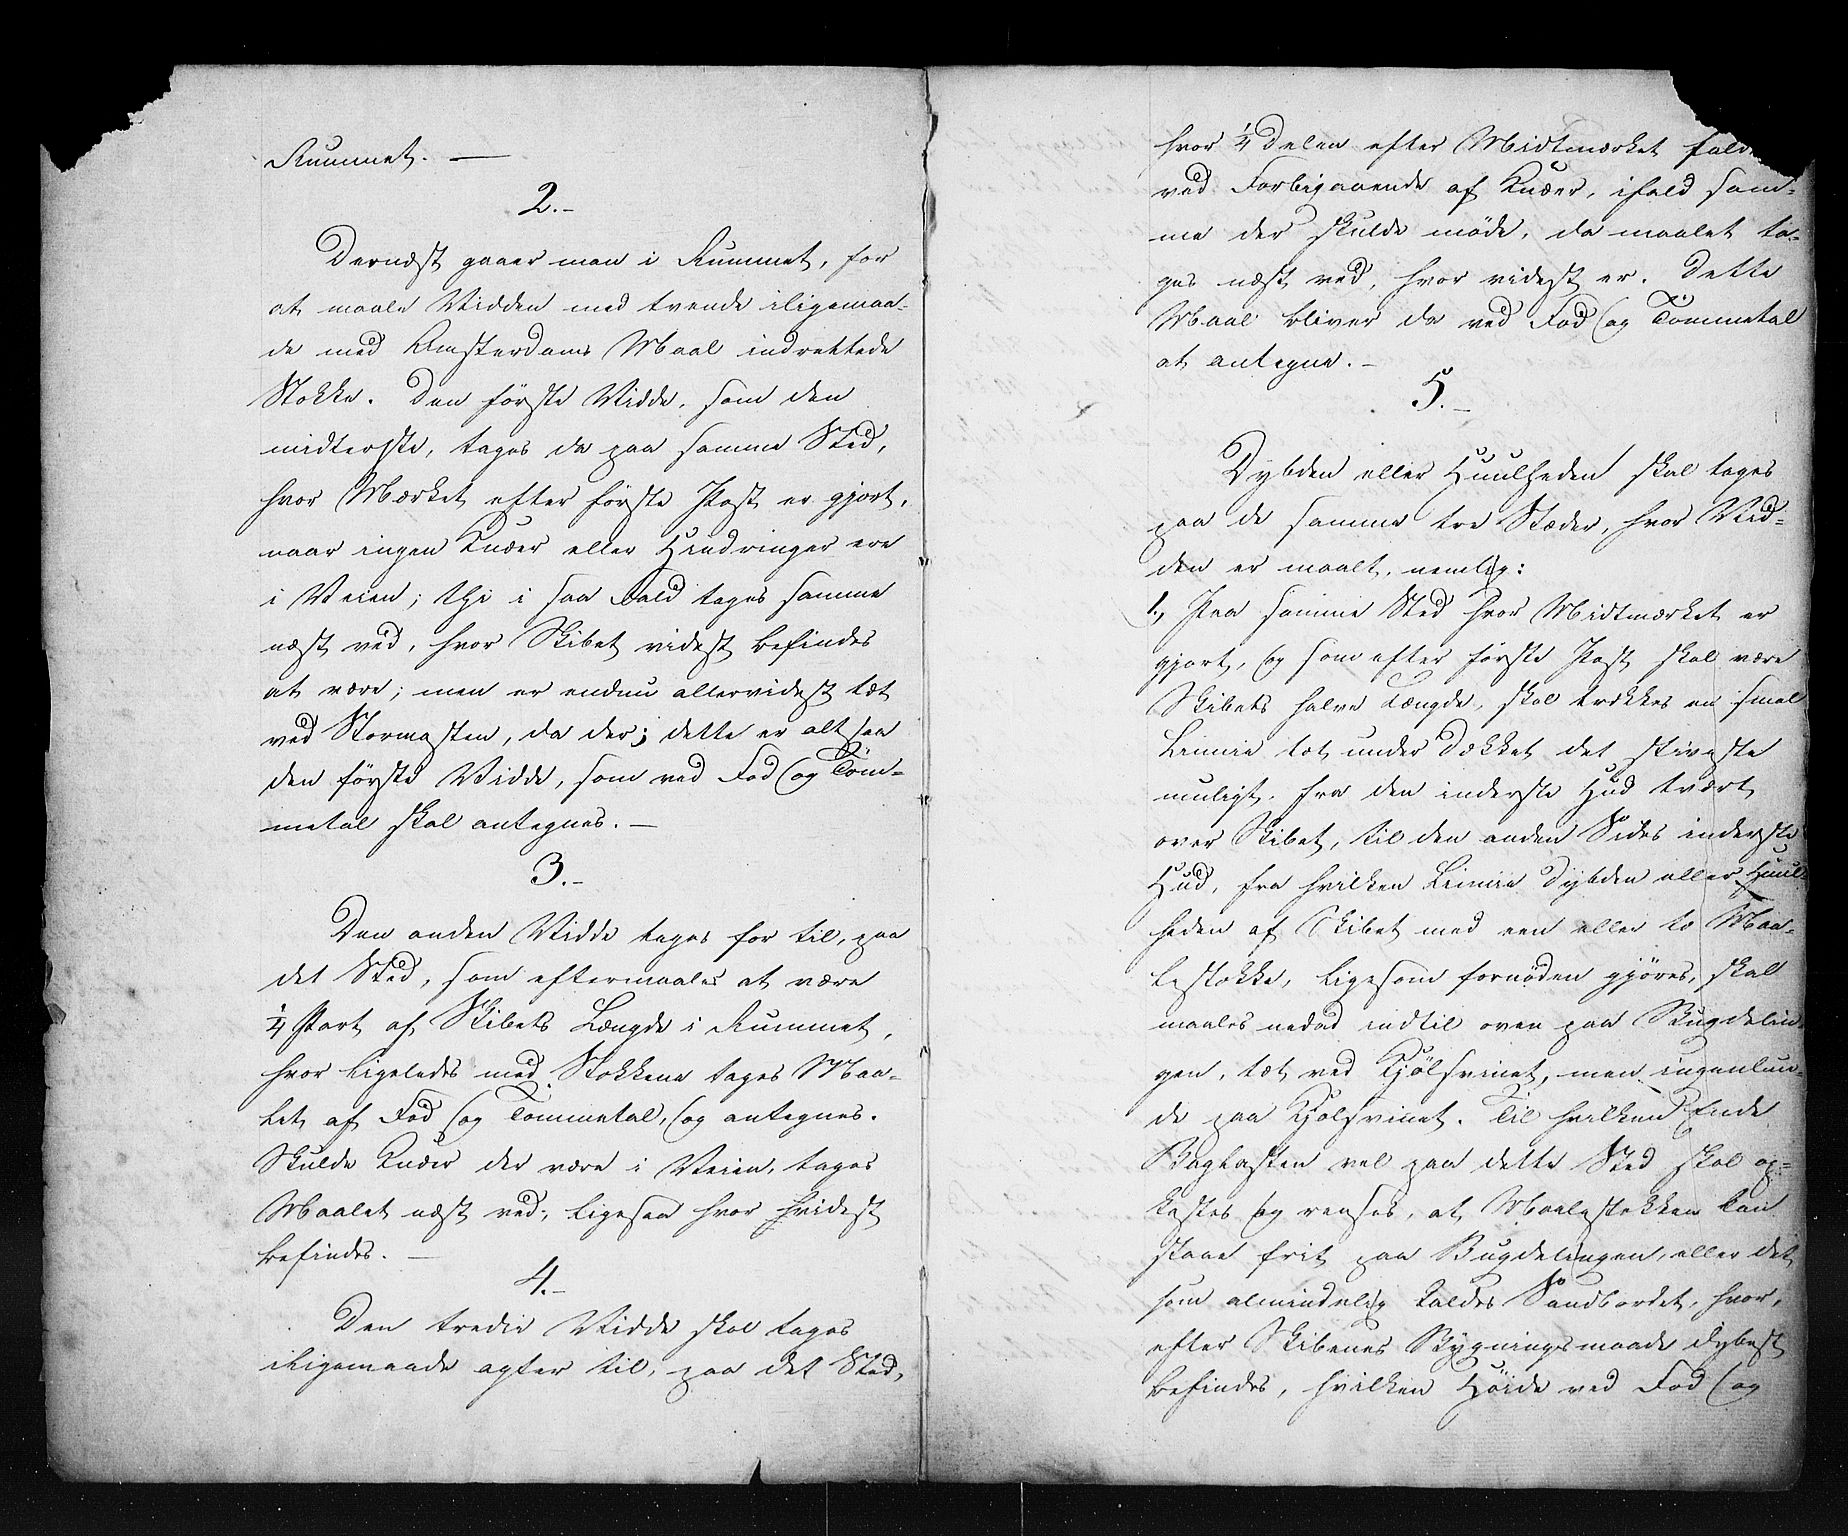 Rummet. —
2.–
Dernæst gaaer man i Rummet, for
at maale Vidden med tvende iligemaa-
de med Amsterdams Maal indrettede
Stokke. Den förste Vidde, som den
midterste, tages da paa samme Sted,
hvor Mærket efter förste Post er gjort,
naar ingen Knæer eller Hindringer ere
i Veien; thi i saa Fald tages samme
næst ved, hvor Skibet videst befindes
at være; men er endnu allervidest tæt
ved Stormasten, da der; dette er altsaa
den förste Vidde, som ved Fod og Tom-
metal skal antegnes. —
3.–
Den anden Vidde tages for til, paa
det Sted, som eftermaales at være
1/4 Part af Skibets Længde i Rummet,
hvor ligeledes med Stokkene tages Maa-
let af Fod og Tommetal, og antegnes.
Skulde Knæer der være i Veien, tages
Maalet næst ved, ligesaa hvor hvidest
befindes. —
4.–
Den tredie Vidde skal tages
iligemaade agter til, paa det Sted,
hvor 1/4 Delen efter Midtmærket fald
ved Forbigaaende af Knæer, ifald sam-
me der skulde möde, da maalet ta-
ges næst ved, hvor videst er. Dette
Maal bliver da ved Fod og Tömmetal
at antegne. –
5.–
Dybden eller Huulheden skal tages
paa de samme tre Stæder, hvor Vid-
den er maalt, nemlig:
1., Paa samme Sted hvor Midtmærket er
gjort, og som efter förste Post skal være
Skibets halve Længde, skal trækkes en smal
Linnie tæt under Dækket det stiveste
muligt, fra den inderste Hud tvært
over Skibet, til den anden Sides inderste
Hud, fra hvilken Linnie Dybden eller Huul-
heden af Skibet med een eller to Maa-
lestokke, ligesom fornöden gjöres, skal
maales nedad indtil oven paa Bugdelin-
gen, tæt ved Kjölsvinet, men ingenlun-
de paa Kjölsvinet. Til hvilken Ende
Baglasten vel paa dette Sted skal op-
kastes og renses, at Maalestokken kan
staae frit paa Bugdelingen, eller det
som almindelig kaldes Sandbordet, hvor,
efter Skibenes Bygningsmaade dybest
befindes, hvilken Höide ved Fod og